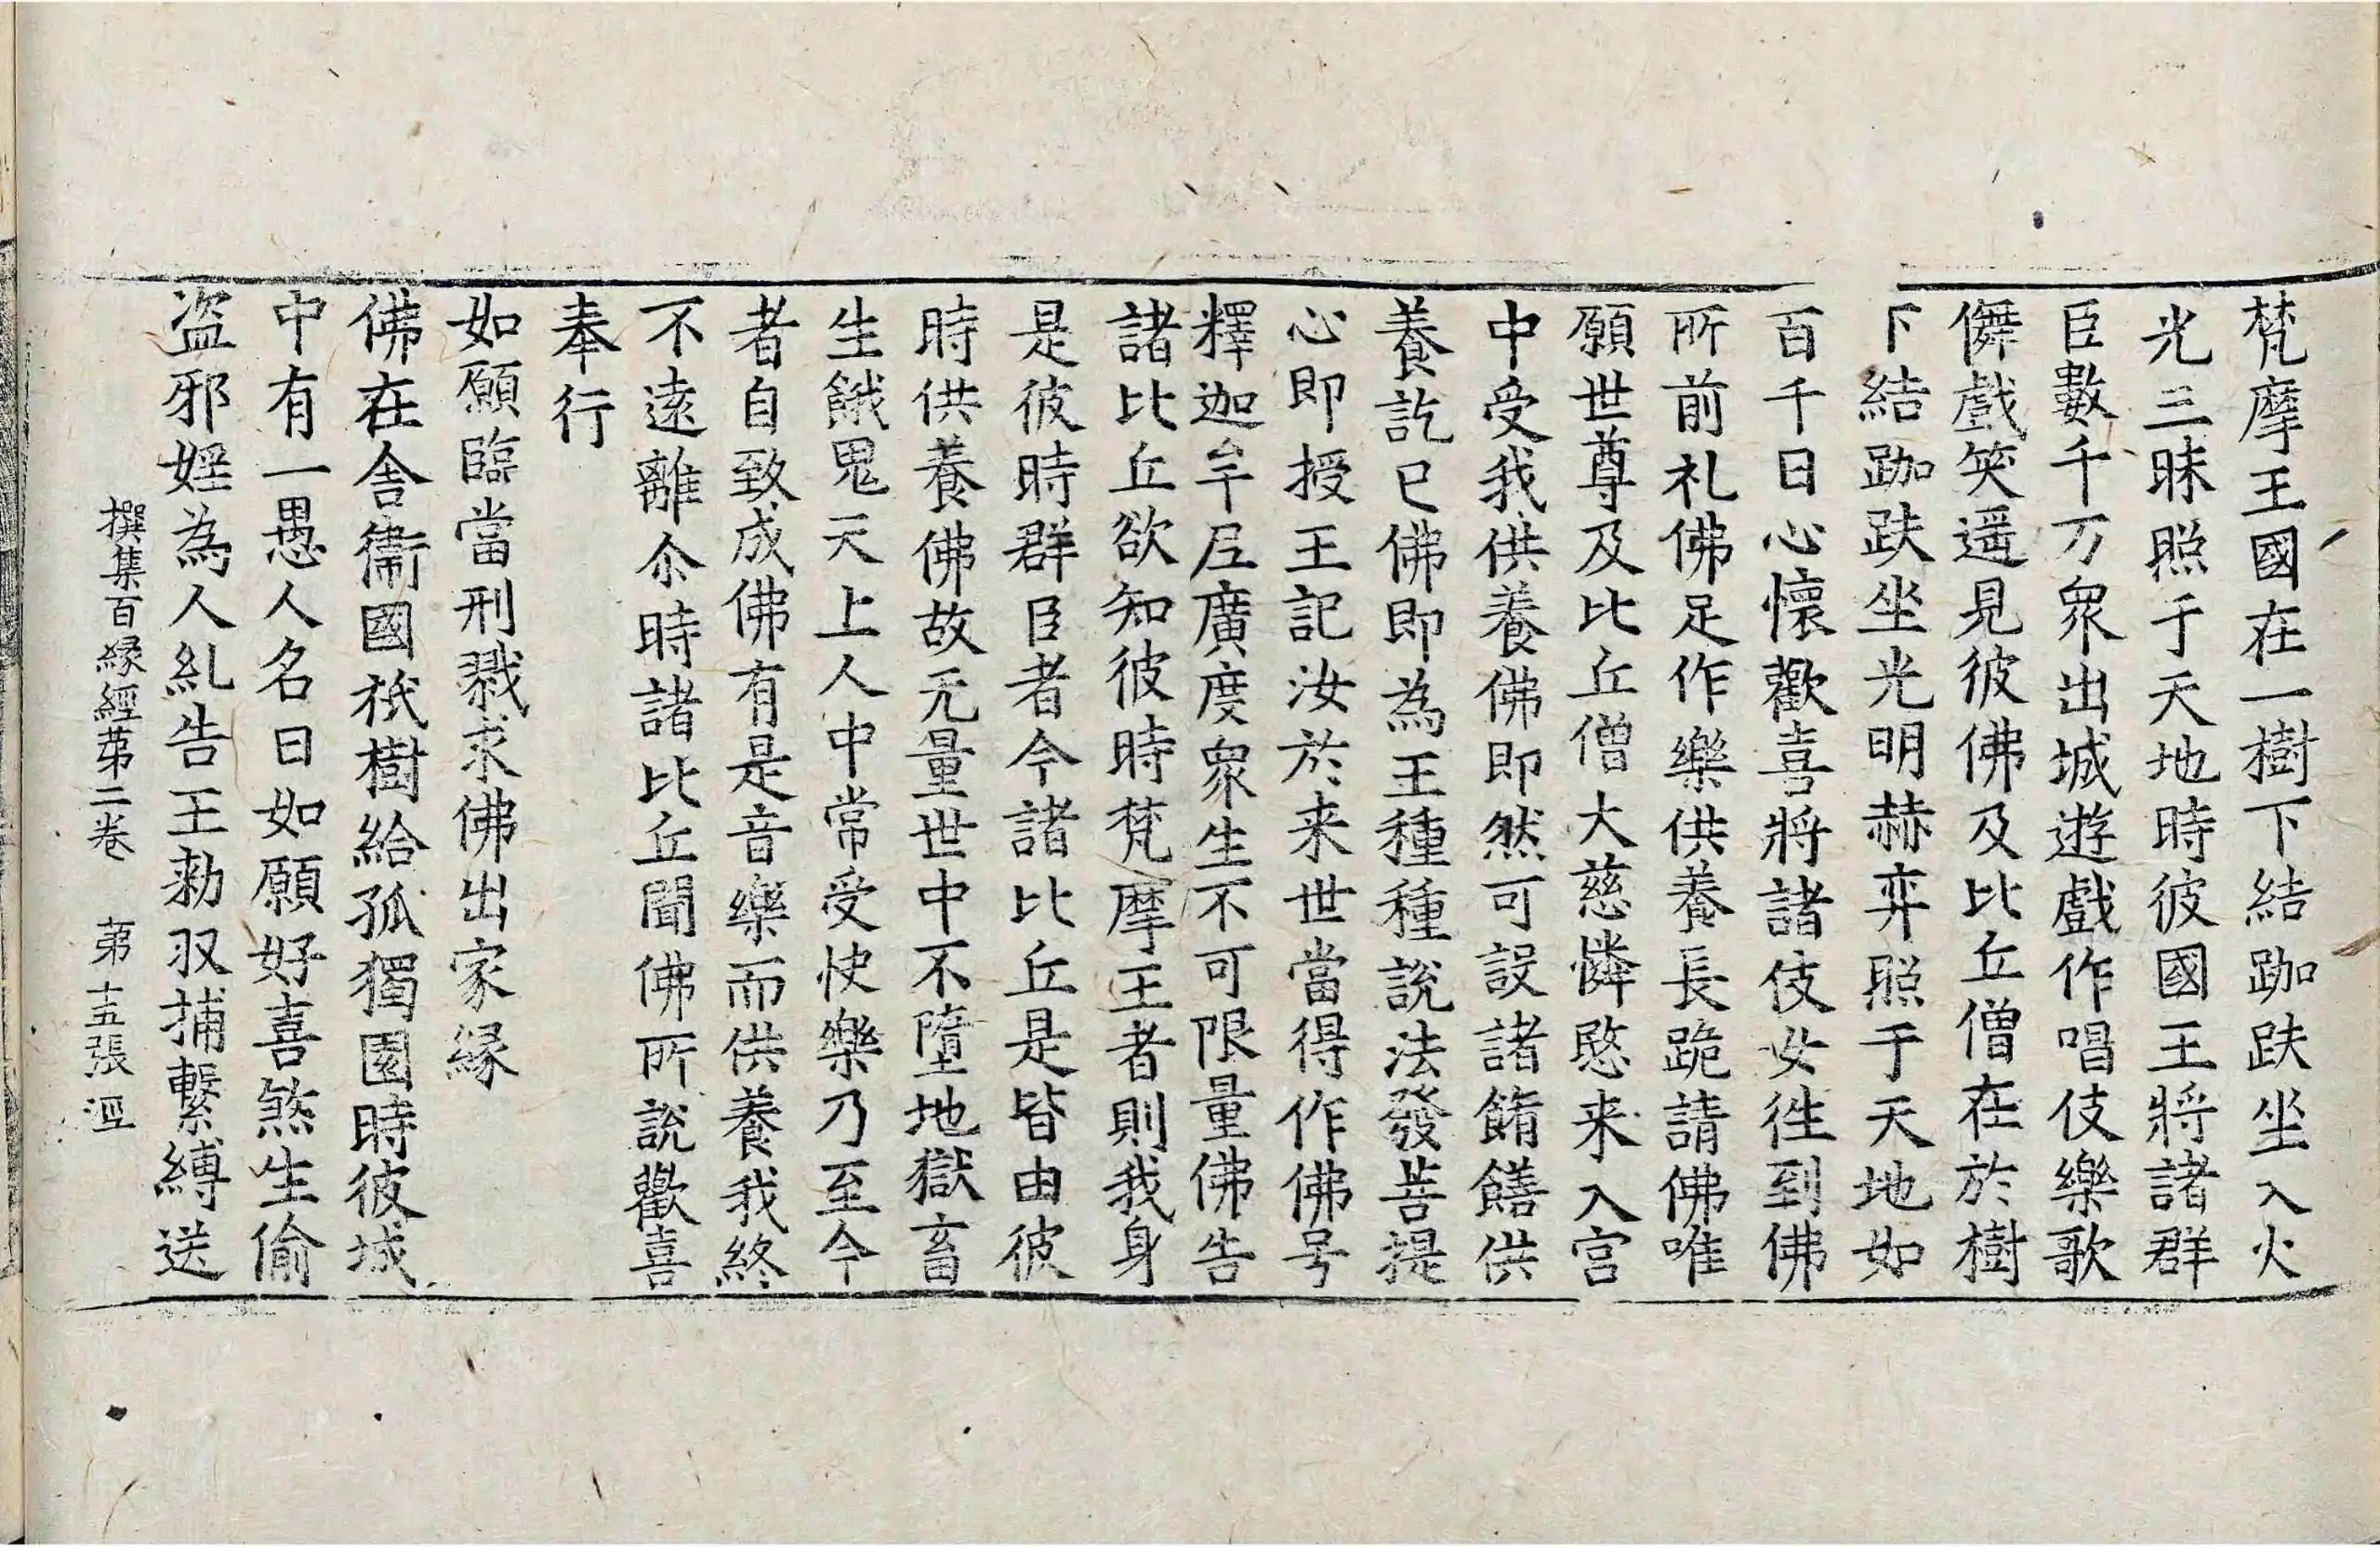 梵摩王國在一樹下結跏趺坐入火
光三昧照于天地時彼國王將諸群
臣數千万衆出城遊戲作唱伎樂歌
儛戲笑遥見彼佛及比丘僧在於樹
下結跏趺坐光明赫弈照于天地如
百千日心懷歡喜將諸伎女徃到佛
所前礼佛足作樂供養長跪請佛唯
願世尊及比丘僧大慈憐愍来入宫
中受我供養佛即然可設諸餚饍供
養訖已佛即為王種種說法發菩提
心即授王記汝於来世當得作佛号
釋迦牟尼廣度衆生不可限量佛告
諸比丘欲知彼時梵摩王者則我身
是彼時群臣者今諸比丘是皆由彼
時供養佛故无量世中不墮地獄畜
生餓鬼天上人中常受快樂乃至今
者自致成佛有是音樂而供養我終
不遠離尒時諸比丘聞佛所說歡喜
奉行
如願臨當刑戮求佛出家縁
佛在舍衞國祇樹給孤獨園時彼城
中有一愚人名曰如願好喜煞生偷
盗邪婬為人糺告王勑収捕繫縛送
撰集百縁經苐二卷　苐十五張　洰